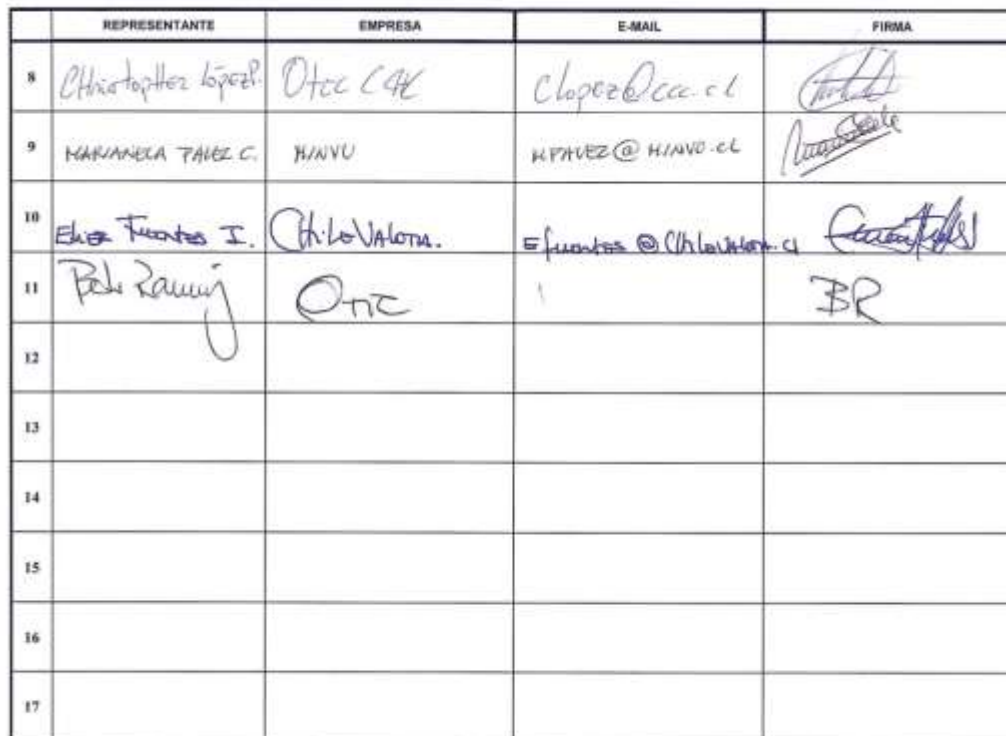 REPRESENTANTE EMPRESA E-MAIL FIRMA
8 Christopher López P. Otec clopez@ccc.cl
9 MARIANELA PAVEZ C. MINVU MPAVEZ@MINVU.CL
10 Fuentes I. ChileValora. Efuentes@ChileValora.cl
11 OTIC BR
12
13
14
15
16
17